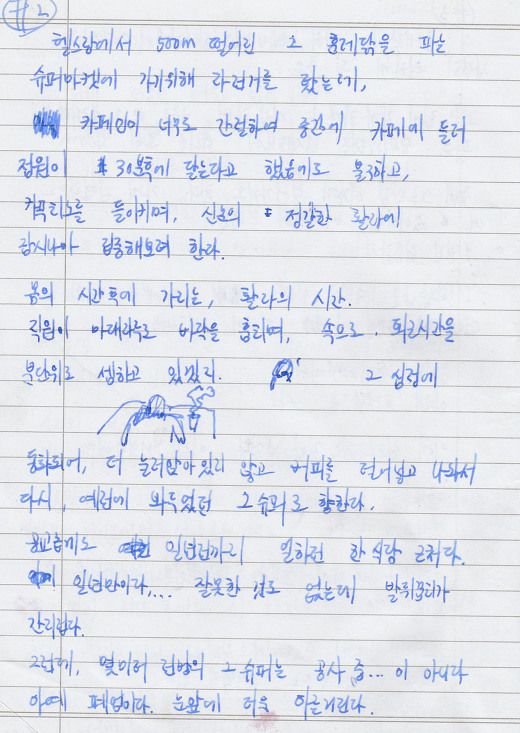 #2
헬스장에서 500m 떨어진 그 훈제닭을 파는
슈퍼마켓에 가기위해 자전거를 탔는데,
카페인이 너무도 간절하여 중간에 카페에 들러
점원이 30분후에 닫는다고 했음에도 불구하고,
들이키며, 신호의 정갈한 찰나에
잠시나마 집중해보려 한다.
봄의 시간 가리는, 찰나의 시간.
직원이 마대자루로 바닥을 훔치며, 속으로 퇴근시간을
분단위로 셈하고 있겠지. 그 심정에
동화되어, 더 눌러앉아 있지 않고 커피를 털어넣고 나와서
다시, 예전에 봐두었던 그 슈퍼로 향한다.
공교롭게도 일년전까지 일하던 한식당 근처다.
일년만이다,... 잘못한 것도 없는데 발뒤꿈치가
간지럽다.
그런데, 몇미터 전방의 그 슈퍼는 공사 중... 이 아니라
아예 폐업이다. 눈앞에 더욱 아른거린다.